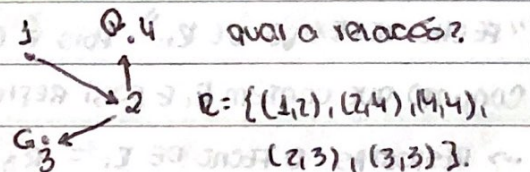 1 4 qual a relação?
2 R = {(1,2), (2,4), (4,4),
3 (2,3), (3,3)}.